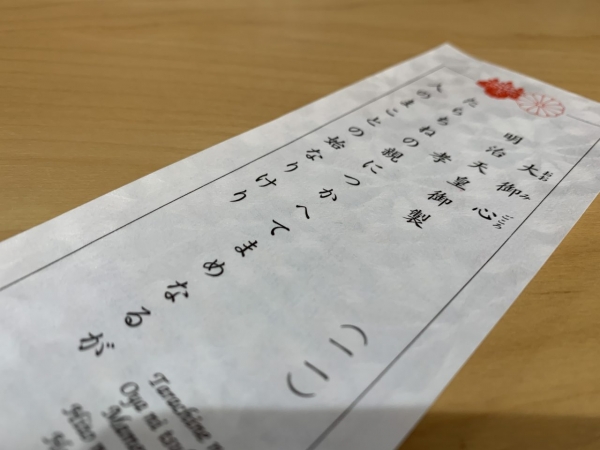 大御心
明治天皇御製
たらちねの親につかへてまめなるが
人のまことの始なりけり
（二）
Tarachine
Oya ni